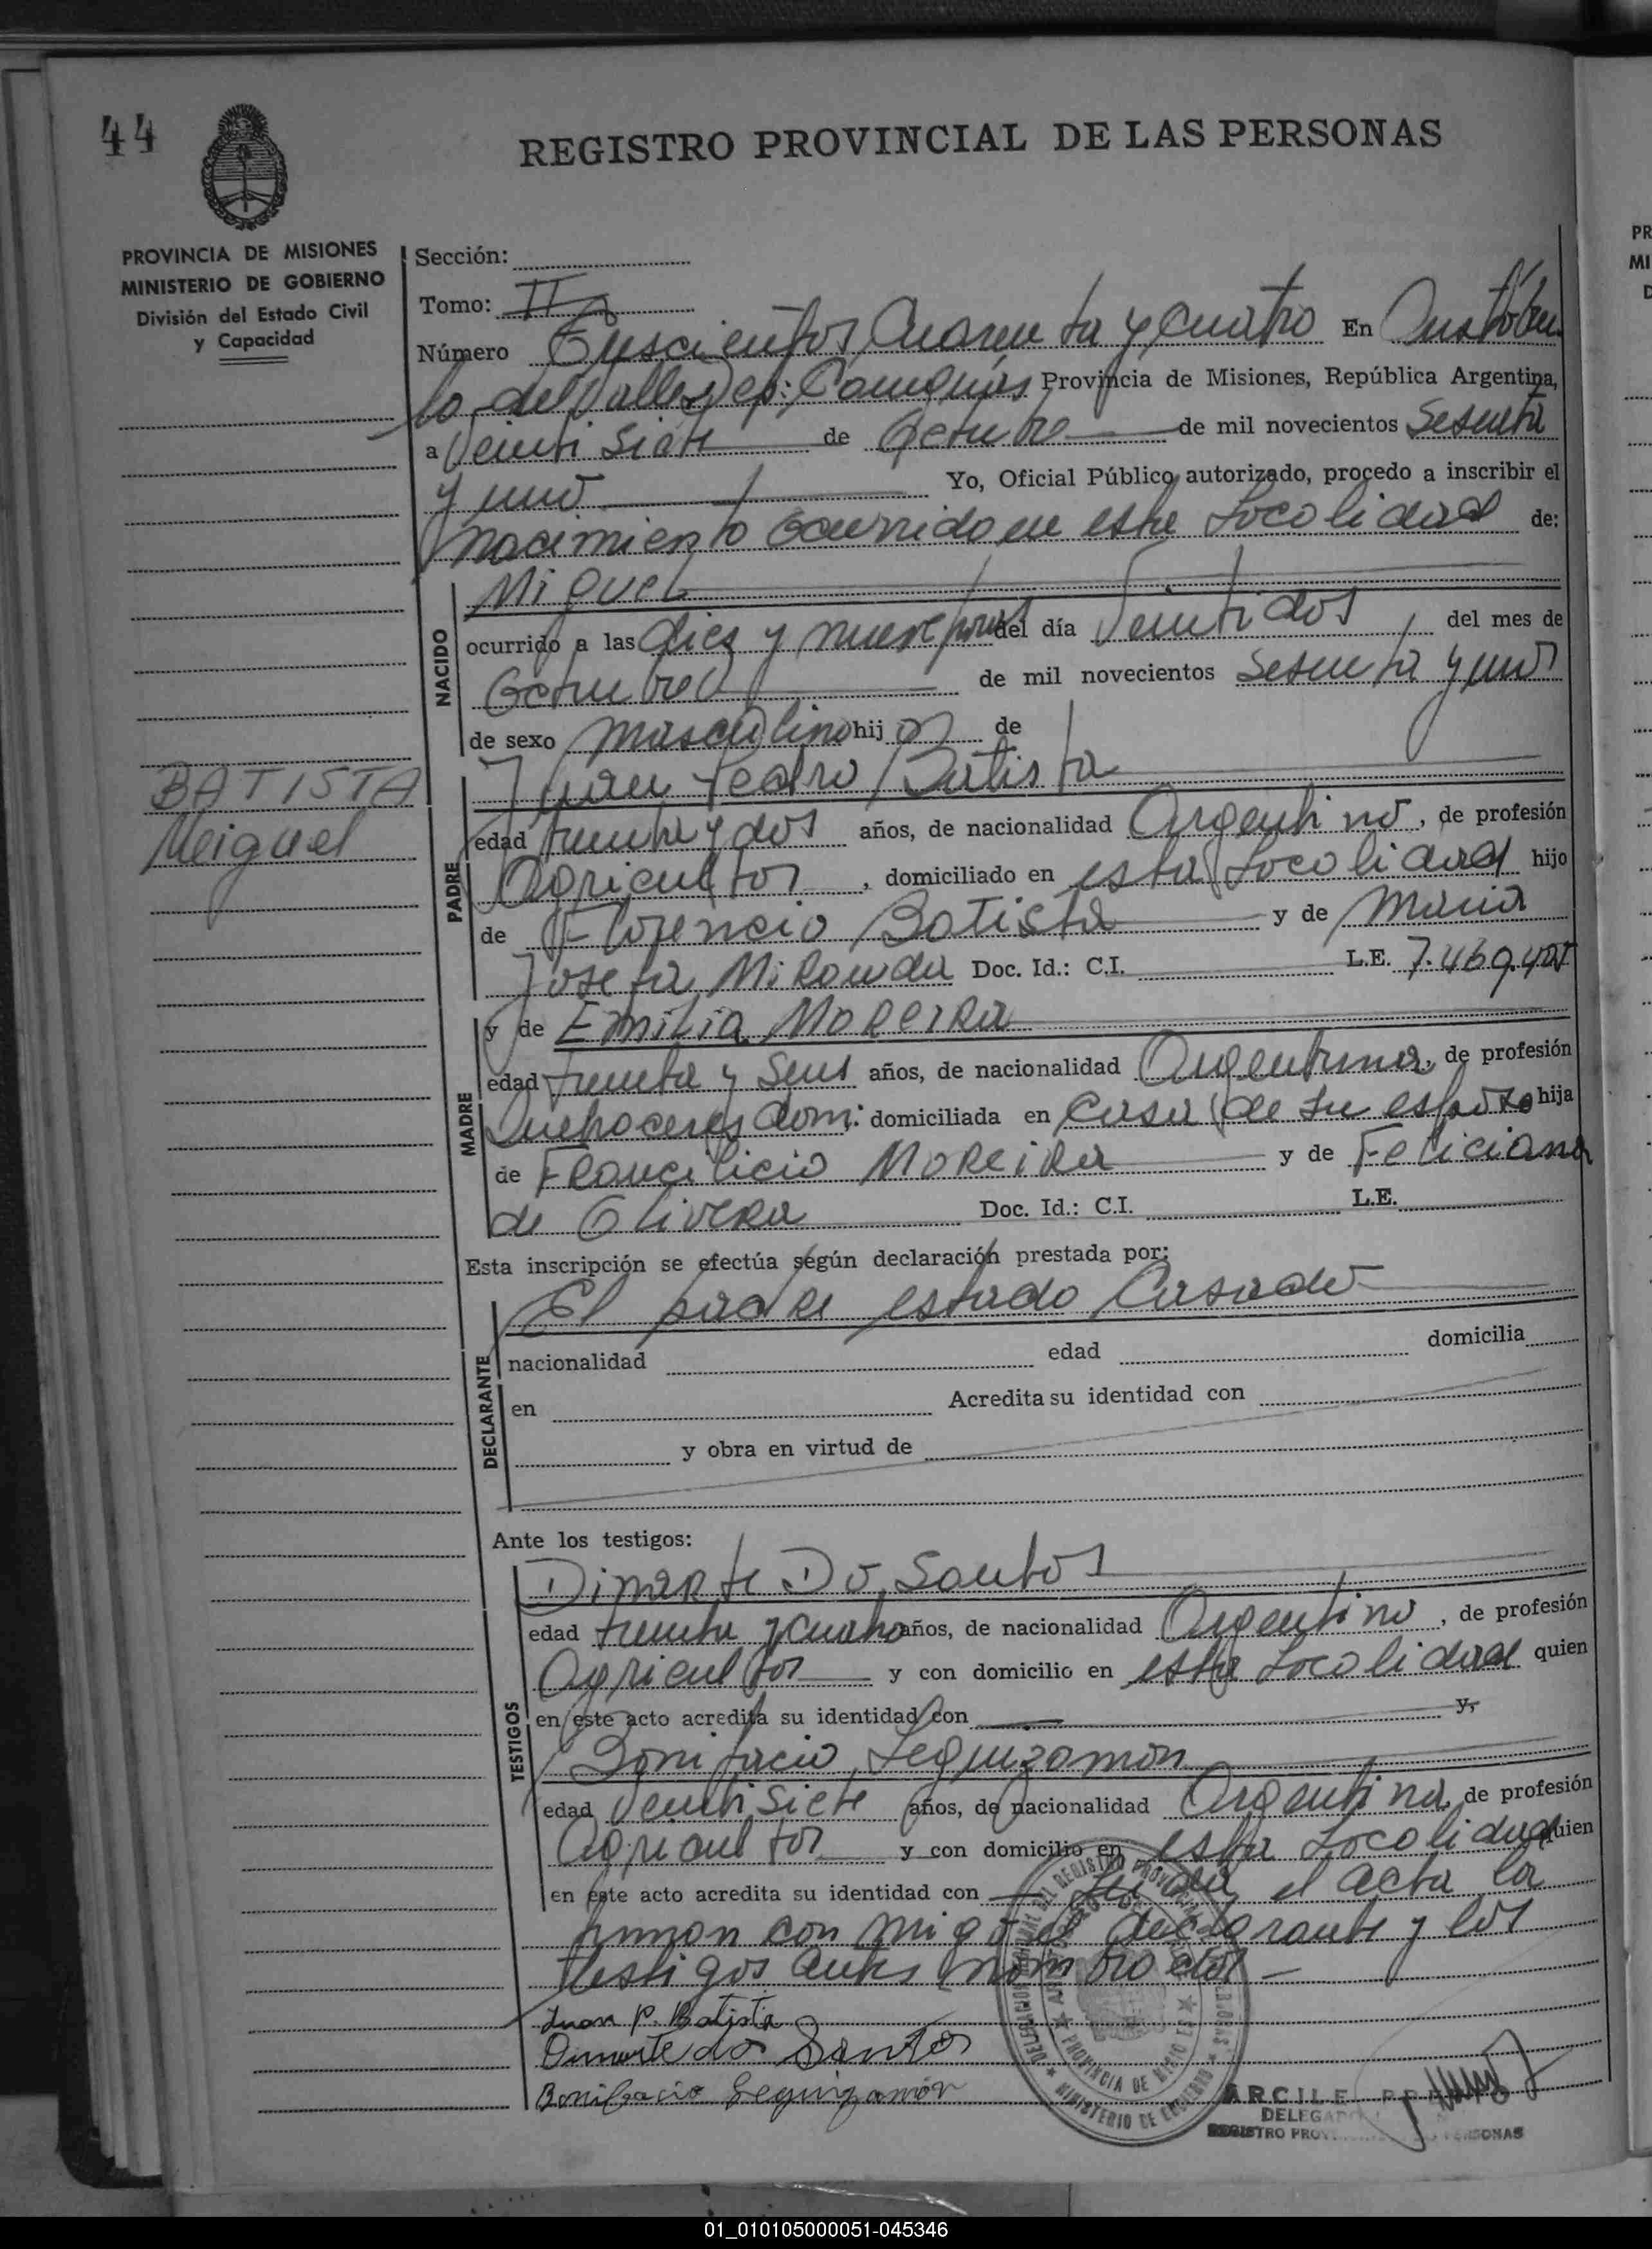 44
REGISTRO PROVINCIAL DE LAS PERSONAS
PROVINCIA DE MISIONES
MINISTERIO DE GOBIERNO
División del Estado Civil
y Capacidad
Sección:
Tomo: II
Número Trescientos Cuarenta y cuatro En Aristóbu
lo del Valle, Dep: Cainguás Provincia de Misiones, República Argentina,
a Veinti Siete de Octubre de mil novecientos Sesenta
y uno Yo, Oficial Público autorizado, procedo a inscribir el
nacimiento Ocurrido en esta Localidad de:
NACIDO
Miguel
ocurrido a las diez y nueve horas del día Veintidos del mes de
Octubre de mil novecientos Sesenta y uno
de sexo masculino hij o de
BATISTA
Meiguel
PADRE
Juan Pedro Batista
edad treinta y dos años, de nacionalidad Argentino, de profesión
Agricultor, domiciliado en esta Localidad hijo
de Florencio Batista y de Maria
Josefa Miranda Doc. Id.: C.I. L.E. 7.469.401
MADRE
y de Emilia Moreira
edad treinta y Seis años, de nacionalidad Argentina, de profesión
Quehaceres dom: domiciliada en Casa de su esposo hija
de Francilicio Moreira y de Feliciana
de Olivera Doc. Id.: C.I. L.E.
Esta inscripción se efectúa según declaración prestada por:
DECLARANTE
El padre estado Casado
nacionalidad edad domicilia
en Acredita su identidad con
y obra en virtud de
Ante los testigos:
TESTIGOS
Dinarte Do Santos
edad treinta y cuatro años, de nacionalidad Argentino, de profesión
Agricultor y con domicilio en esta Localidad quien
en este acto acredita su identidad con y,
Bonifacio Leguizamon
edad Veinti Siete años, de nacionalidad Argentina, de profesión
Agricultor y con domicilio en esta Localidad quien
en este acto acredita su identidad con Leida el acta la
firman con migo el declarante y los
testigos antes nombrados
Juan P. Batista
Dinarte dos Santos
Bonifacio Leguizamón
PROVINCIA DE
MINISTERIO DE GOBIERNO
ARCILE
DELEGADO
REGISTRO PERSONAS
01_010105000051-045346